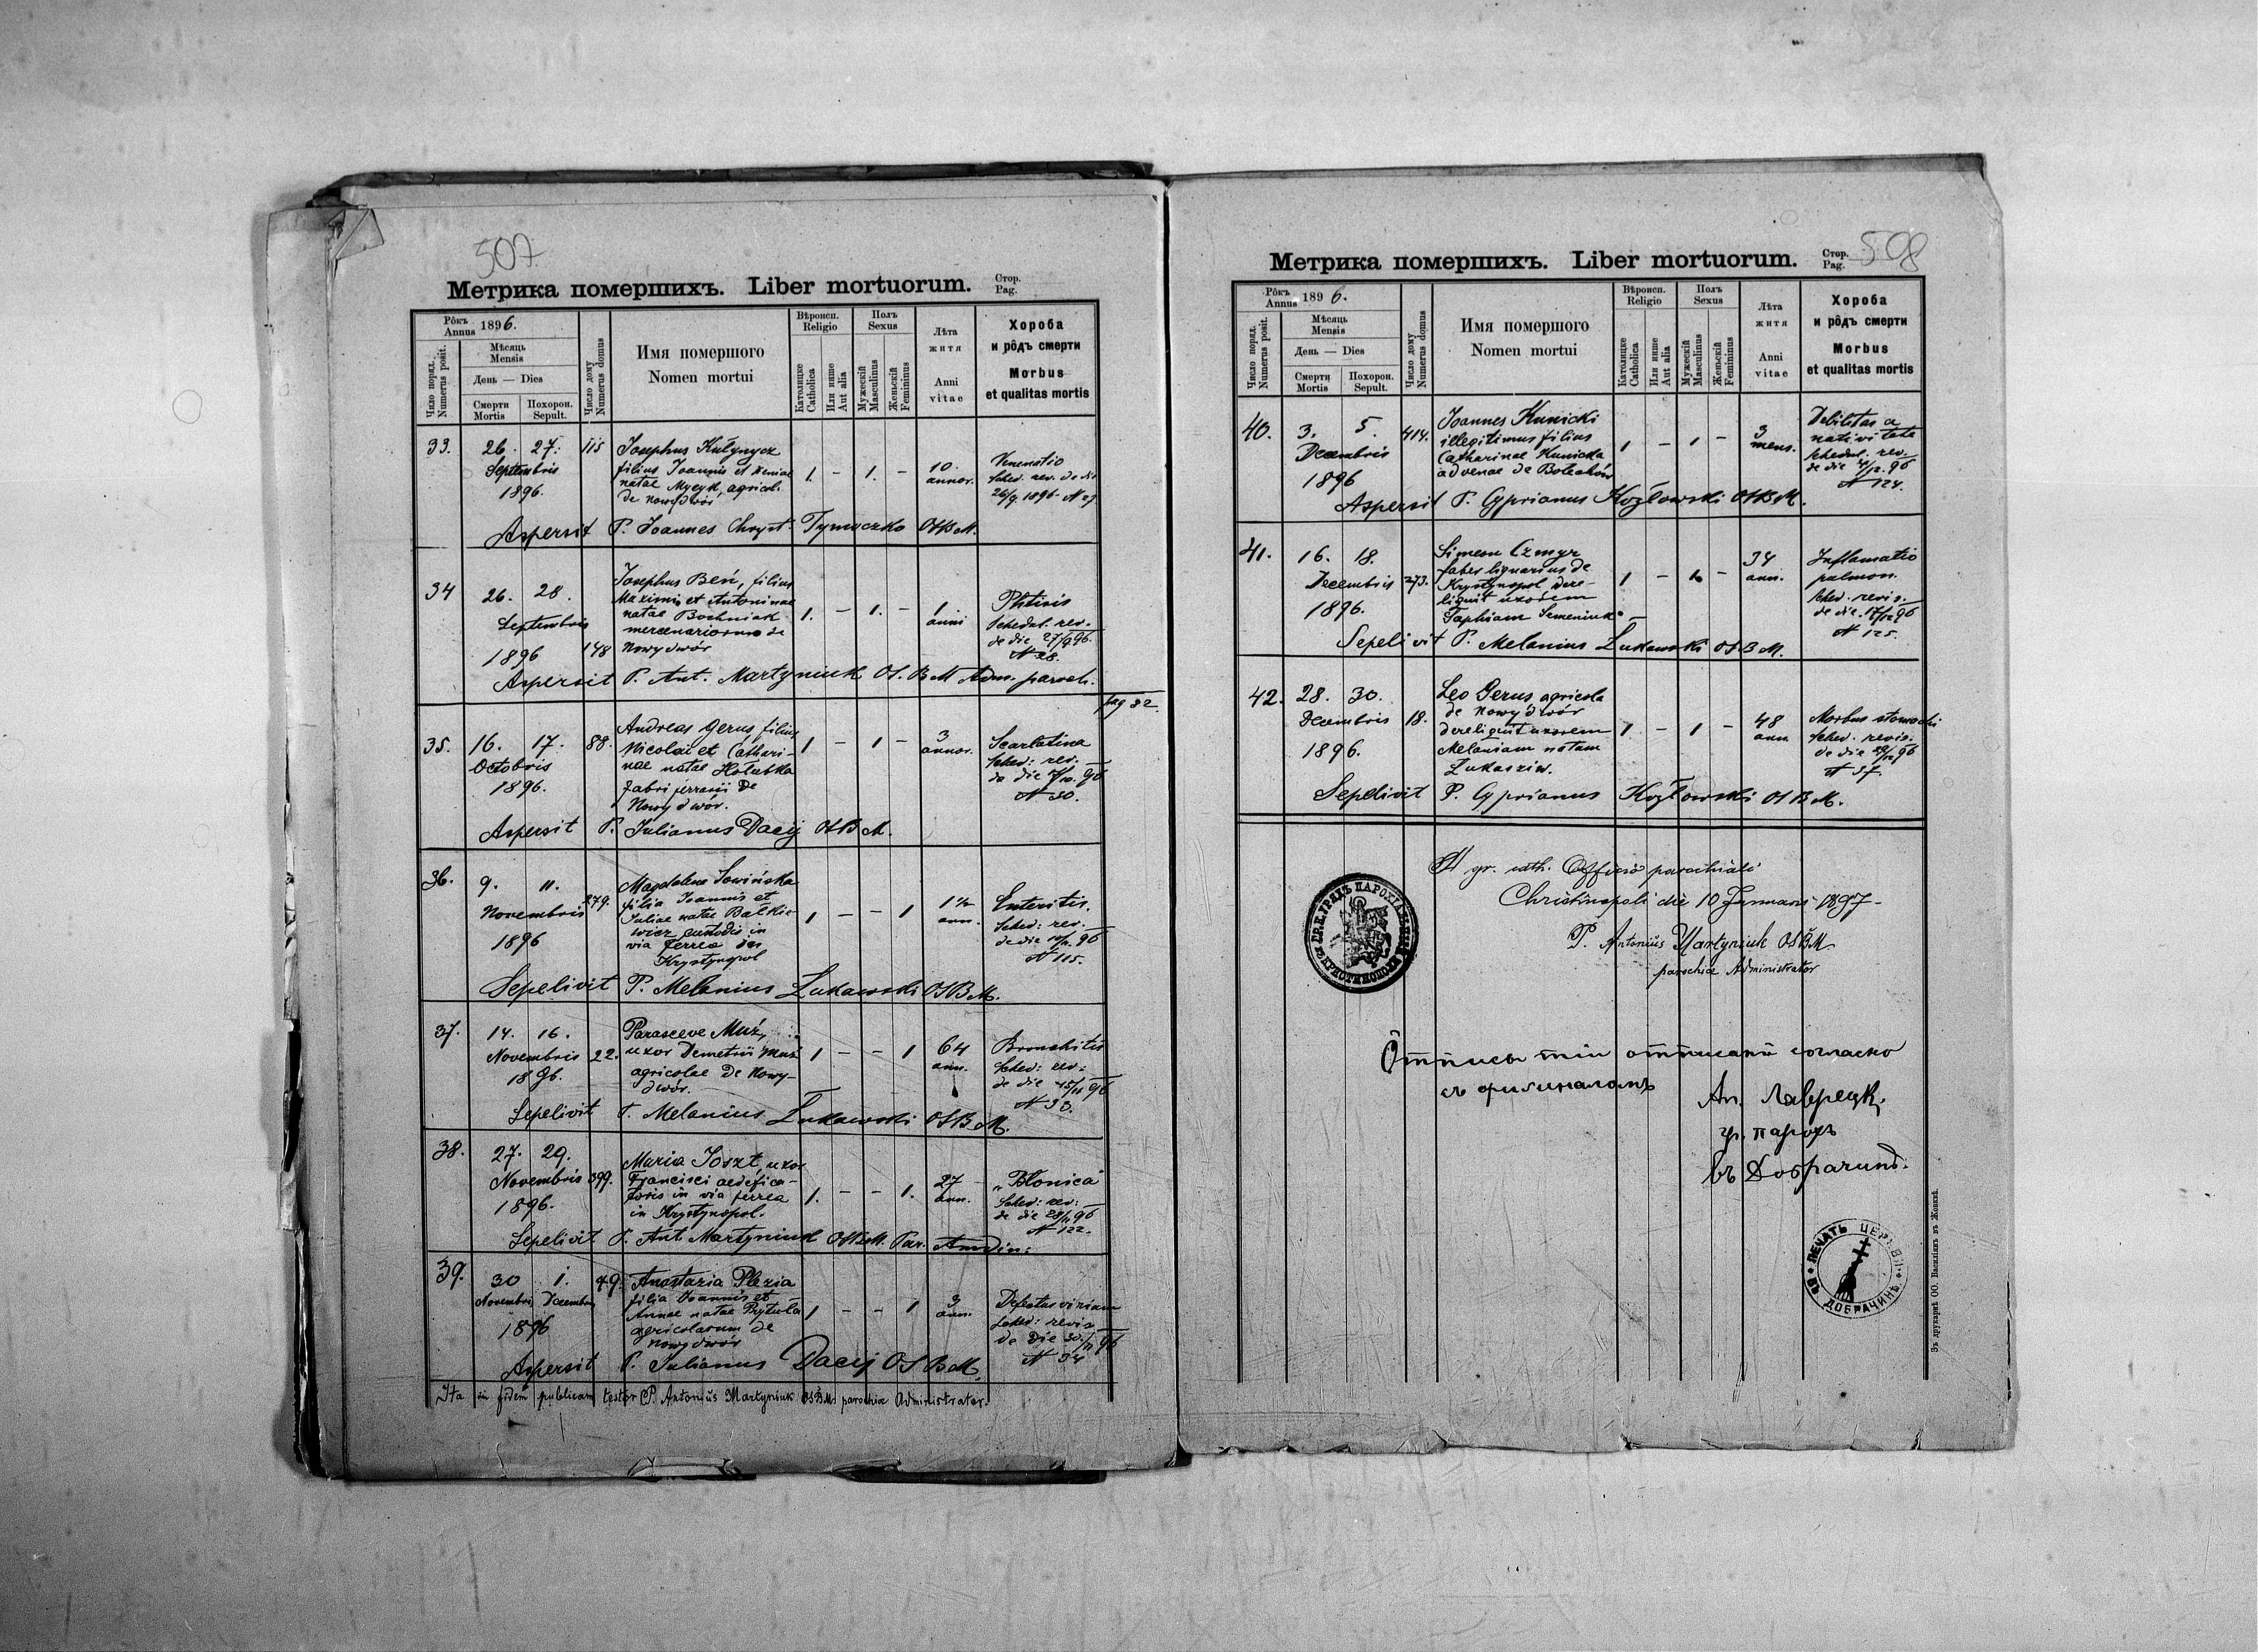 507
Метрика помершихъ. Liber mortuorum. Стор. Pag.
Рôкъ Annus 1896.
Число поряд. Numerus posit.
Мѣсяць Mensis
День — Dies
Смерти Mortis
Похорон. Sepult.
Число дому Numerus domus
Имя помершого Nomen mortui
Вѣроисп. Religio
Католицке Catholica
Или инше Aut alia
Полъ Sexus
Мужескій Masculinus
Женьскій Femininus
Лѣта житя Anni vitae
Хороба и рôдъ смерти Morbus et qualitas mortis
33. 26. 27. 115 Josephus Kułynycz 1. – 1. – 10. annor. Venenatio
Septembris filius Joannis et Xeniae Sched. rev. de die
1896. natae Mycyk, agricol. 26/9 1896 N 27
de Nowydwór
Aspersit P. Joannes Chryst. Tymoczko OSBM.
34 26. 28. Josephus Beń, filius 1. – 1. – 1 anni Phtisis
Septembris Maximi et Antoninae Schedul. rev.
natae Bochniak de die 27/9 96.
mercenariorum de N 28.
1896 148 Nowydwór
Aspersit P. Ant. Martyniuk O.S.B.M Adm. paroch.
pag 82.
35. 16. 17. 88. Andreas Gerus filius 1 – 1 – 3 annor. Scarlatina
Octobris Nicolai et Cathari- Sched: rev:
1896. nae natae Hołubka de die
fabri ferrarii de N 30.
Nowydwór.
Aspersit P. Julianus Dacij OSBM.
36. 9. 11. 279. Magdalena Sowińska 1 – – 1 1½ ann. Enteritis.
Novembris filia Joannis et Sched: rev:
1896 Juliae natae Balkie- de die 10/11 96
wicz custodis in N 115.
via ferrea in
Krystynopol
Sepelivit P. Melanius Łukawski OSBM.
37. 14. 16. 22. Parasceve Muź, 1 – – 1 64 ann. Bronchitis
Novembris uxor Demetrii Muź Sched: rev:
1896. agricolae de Nowy- de die 15/11 96
dwór. N 30.
Sepelivit P. Melanius Łukawski OSBM.
38. 27. 29. 399. Maria Joszt, uxor 1. – – 1. 27 ann. „Błonica"
Novembris Francisci aedifica- Sched: rev:
1896. toris in via ferrea de die 28/11 96
in Krystynopol. N 122.
Sepelivit P. Ant. Martyniuk OSBM. Par. Amdin:
39. 30 1. 49. Anastazia Plexia 1 – – 1 3 ann. Defectus virium
Novembris Decembris filia Joannis et Sched: revis
1896 Annae natae Prytuła de die 30/11 96
agricolarum de N 34
Nowydwór
Aspersit P. Julianus Dacij OSBM.
Ita in fidem publicam testor P. Antonius Martyniuk OSBM parochiae Administrator.
Метрика помершихъ. Liber mortuorum. Стор. Pag. 508
Рôкъ Annus 1896.
Число поряд. Numerus posit.
Мѣсяць Mensis
День — Dies
Смерти Mortis
Похорон. Sepult.
Число дому Numerus domus
Имя помершого Nomen mortui
Вѣроисп. Religio
Католицке Catholica
Или инше Aut alia
Полъ Sexus
Мужескій Masculinus
Женьскій Femininus
Лѣта житя Anni vitae
Хороба и рôдъ смерти Morbus et qualitas mortis
40. 3. 5. 414. Joannes Kunicki 1 – 1 – 3 mens. Debilitas a
Decembris illegitimus filius nativitate
1896 Catharinae Kunicka Schedul. rev.
advenae de de die 4/12. 96
N 124.
Aspersit P. Cyprianus Kozłowski OSBM.
41. 16. 18. 273. Simeon Czmyr 1 – 1 – 34 ann. Inflamatio
Decembris faber lignarius de pulmon.
1896. Krystynopol dere- Sched. revis.
liquit uxorem de die 17/12 96
Semeniuk N 125.
Sepelivit P. Melanius Łukawski OSBM.
42. 28. 30. 18. Leo Gerus agricola 1 – 1 – 48 ann. Morbus stomachi
Decembris de Nowydwór Sched. revis.
1896. dereliquit uxorem de die 29/12 96
Melaniam natam N 37.
Łukasziw.
Sepelivit P. Cyprianus Kozłowski OSBM.
gr. cath. Officio parochiali
Christinopoli die 10 Januarii 1897
P. Antonius Martyniuk OSBM
parochiae Administrator
Отписы тіи отписанû согласно
съ оригиналомъ
Ан. Лаврецк.
гр. парохъ
въ Добрачинѣ.
ПЕЧАТЬ ЦЕРКВИ ВЪ ДОБРАЧИНѢ
Зъ друкарнѣ ОО. Василіянъ въ Жовквѣ.